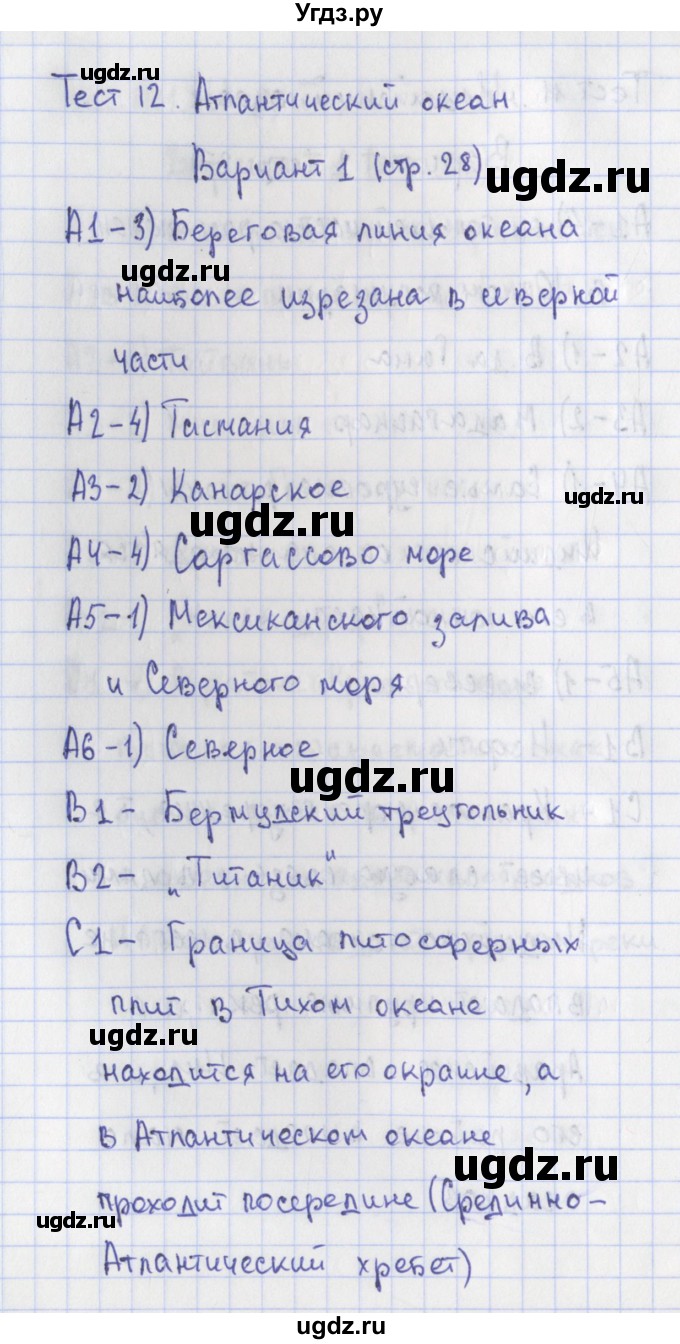 Угдз.ру
ugdz.ru
Тест 12. Атлантический океан
Вариант 1 (стр. 28)
ugdz.ru
А1-3) Береговая линия океана
ugdz.ru
наиболее изрезана в северной
части
А2-4) Тасмания
А3-2) Канарское
ugdz.ru
ugdz.ru
А4-4) Саргассово море
А5-1) Мексиканского залива
и Северного моря
А6-1) Северное
ugdz.ru
В1 - Бермудский треугольник
В2 - „Титаник"
С1 - Граница литосферных
плит в Тихом океане
ugdz.ru
находится на его окраине, а
в Атлантическом океане
ugdz.ru
проходит посередине (Срединно-
ugdz.ru
Атлантический хребет)
ugdz.ru